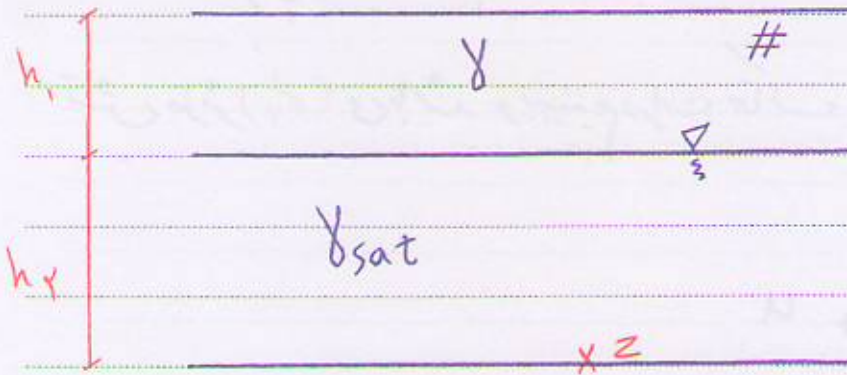 h₁
γ
#
γsat
h۲
x z